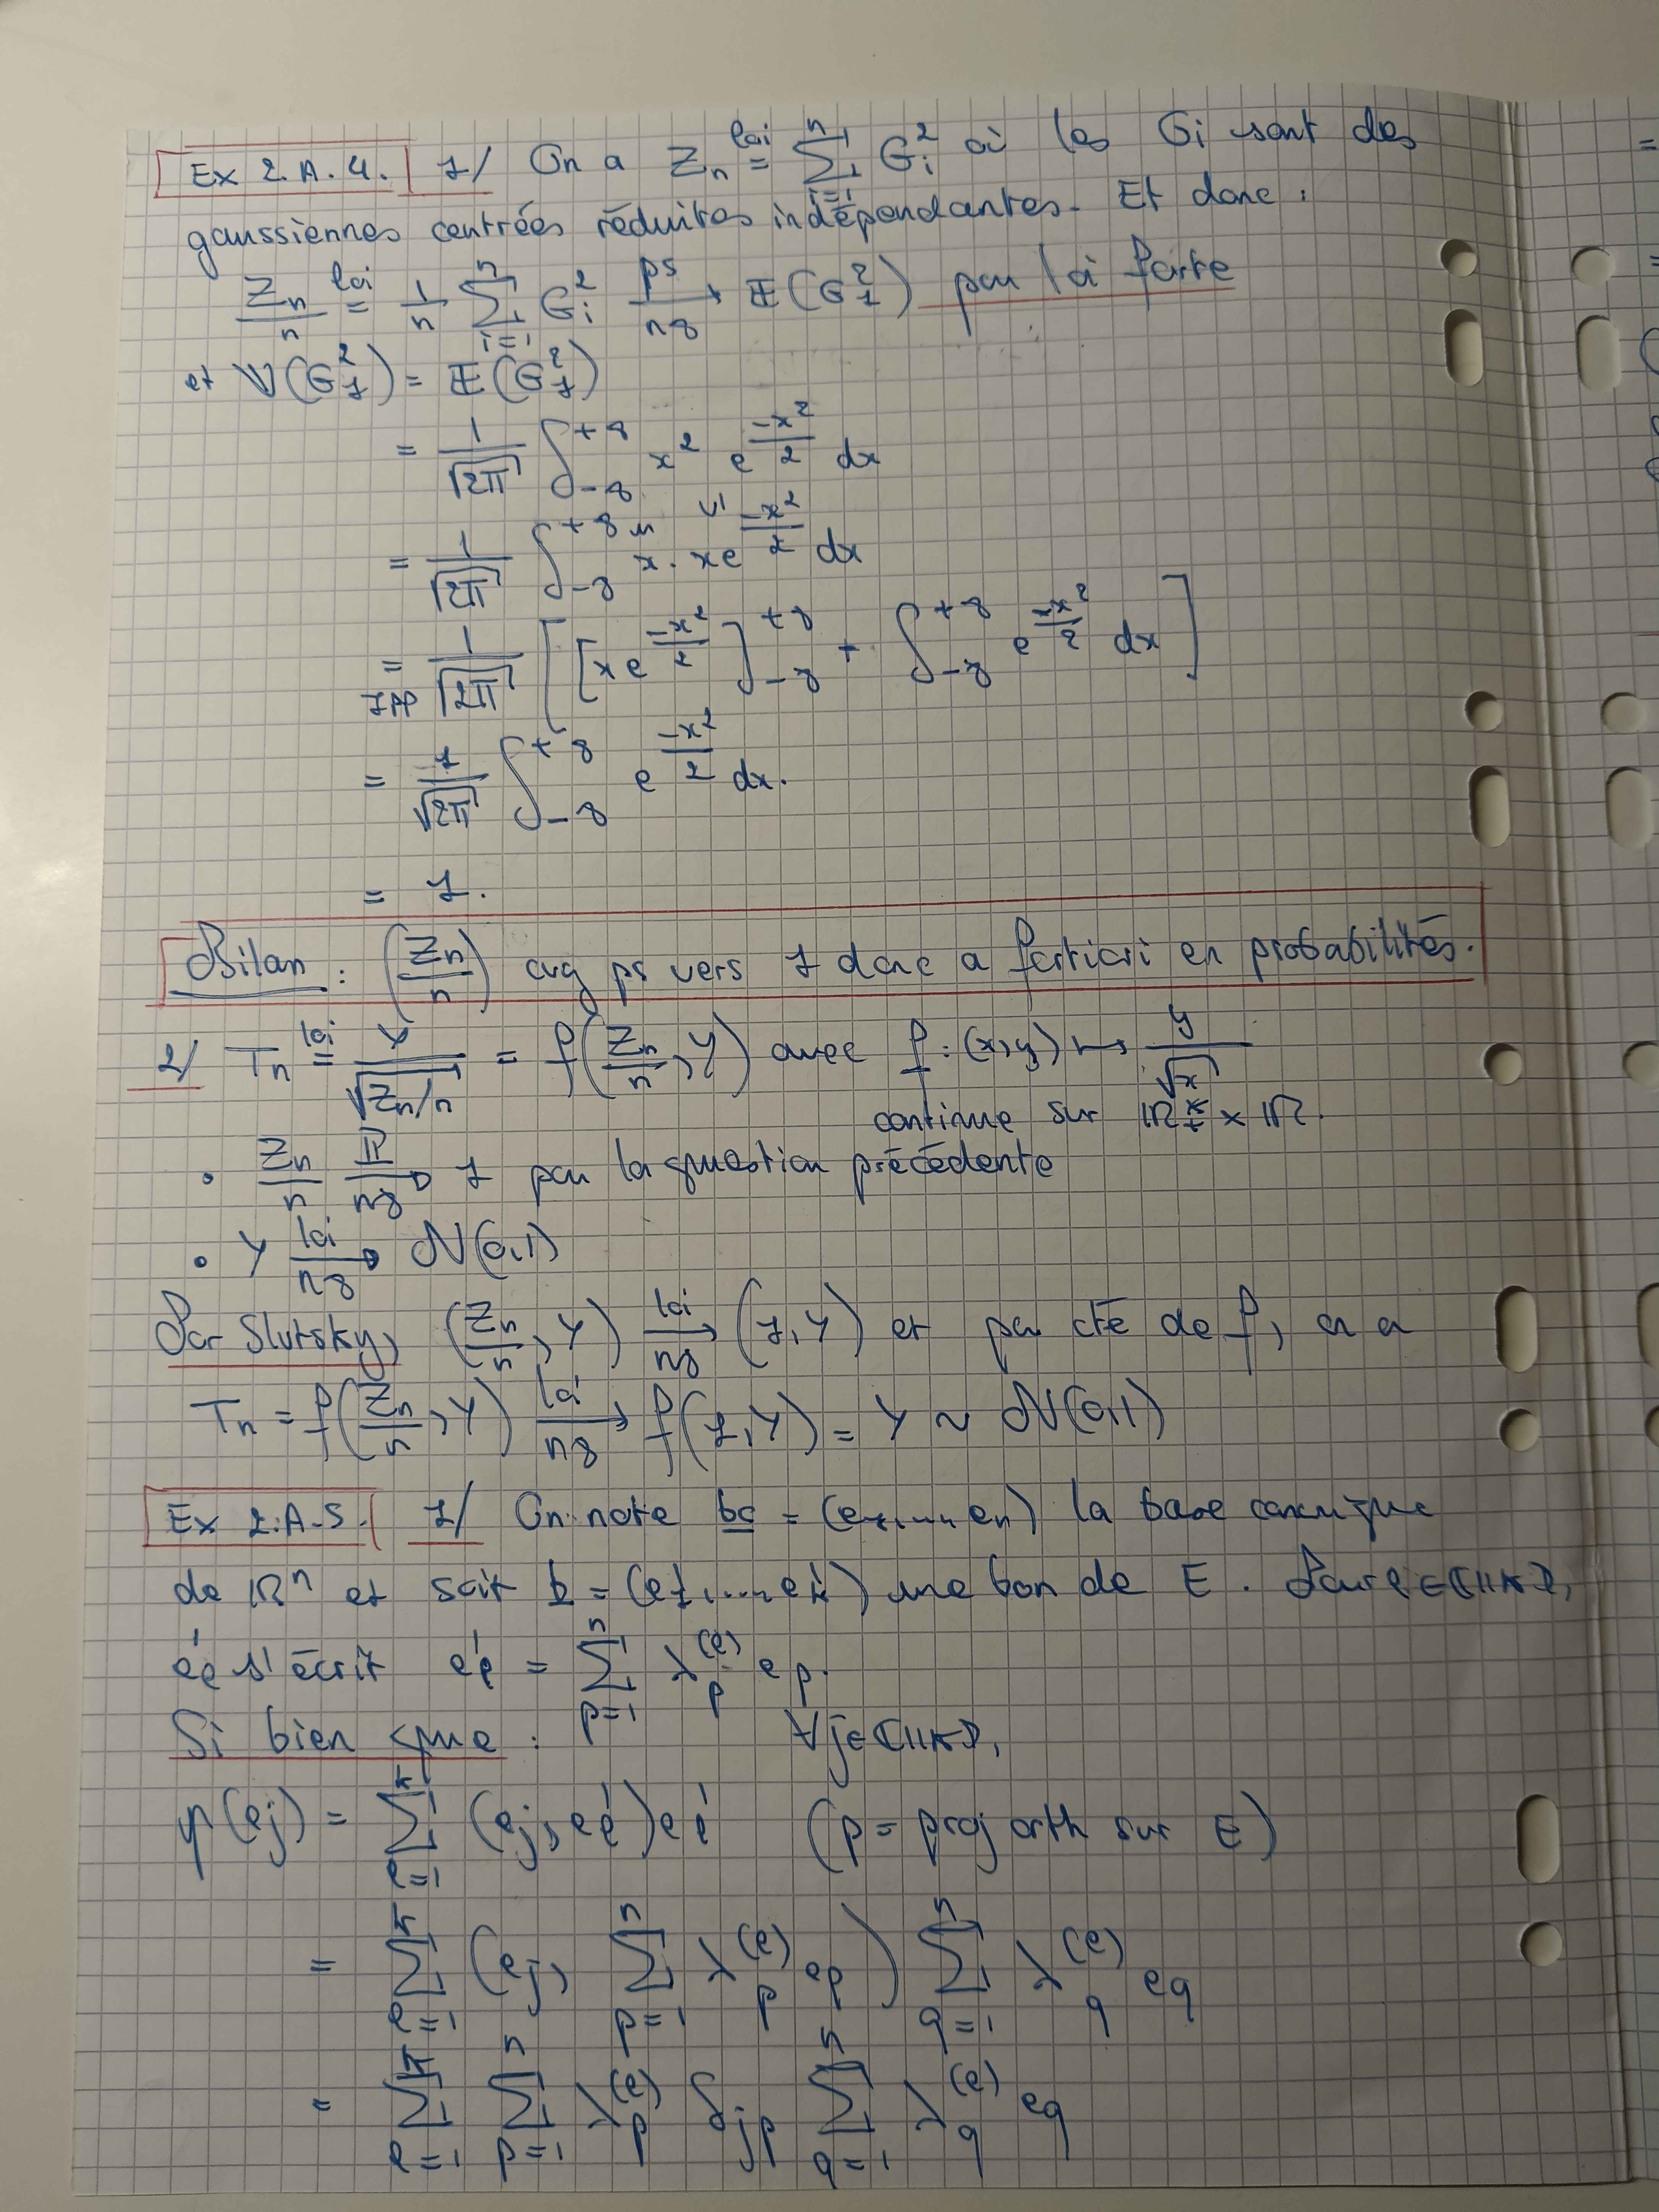 Ex 2.A.4. 1/ On a Z_n =^{loi} \sum_{i=1}^{n} G_i^2 où les G_i sont des
gaussiennes centrées réduites indépendantes. Et donc :
\frac{Z_n}{n} =^{loi} \frac{1}{n} \sum_{i=1}^{n} G_i^2 \xrightarrow[n\infty]{ps} E(G_1^2) par loi forte
et V(G_1^2) = E(G_1^2)
= \frac{1}{\sqrt{2π}} \int_{-∞}^{+∞} x^2 e^{\frac{-x^2}{2}} dx
= \frac{1}{\sqrt{2π}} \int_{-∞}^{+∞} x . x e^{\frac{-x^2}{2}} dx
u v'
=_{IPP} \frac{1}{\sqrt{2π}} [ [x e^{\frac{-x^2}{2}}]_{-∞}^{+∞} + \int_{-∞}^{+∞} e^{\frac{-x^2}{2}} dx ]
= \frac{1}{\sqrt{2π}} \int_{-∞}^{+∞} e^{\frac{-x^2}{2}} dx.
= 1.
Bilan : (\frac{Z_n}{n}) cvg ps vers 1 donc a fortiori en probabilités.
2/ T_n =^{loi} \frac{Y}{\sqrt{Z_n/n}} = f(\frac{Z_n}{n}, Y) avec f : (x,y) ↦ \frac{y}{\sqrt{x}}
continue sur ℝ_+^* × ℝ.
• \frac{Z_n}{n} \xrightarrow[n∞]{ℙ} 1 par la question précédente
• Y \xrightarrow[n∞]{loi} N(0,1)
Par Slutsky, (\frac{Z_n}{n}, Y) \xrightarrow[n∞]{loi} (1, Y) et par cté de f, on a
T_n = f(\frac{Z_n}{n}, Y) \xrightarrow[n∞]{loi} f(1, Y) = Y ~ N(0,1)
Ex 2.A.5. 1/ On note bc = (e_1,...,e_n) la base canonique
de ℝ^n et soit b = (e'_1,...,e'_k) une bon de E. Pour ℓ ∈ ⟦1,k⟧,
e'_ℓ s'écrit e'_ℓ = \sum_{p=1}^{n} λ_p^{(ℓ)} e_p.
Si bien que : ∀j∈⟦1,k⟧,
p(e_j) = \sum_{ℓ=1}^{k} (e_j, e'_ℓ) e'_ℓ (p = proj orth sur E)
= \sum_{ℓ=1}^{k} (e_j, \sum_{p=1}^{n} λ_p^{(ℓ)} e_p) \sum_{q=1}^{n} λ_q^{(ℓ)} e_q
= \sum_{ℓ=1}^{k} \sum_{p=1}^{n} λ_p^{(ℓ)} δ_{jp} \sum_{q=1}^{n} λ_q^{(ℓ)} e_q